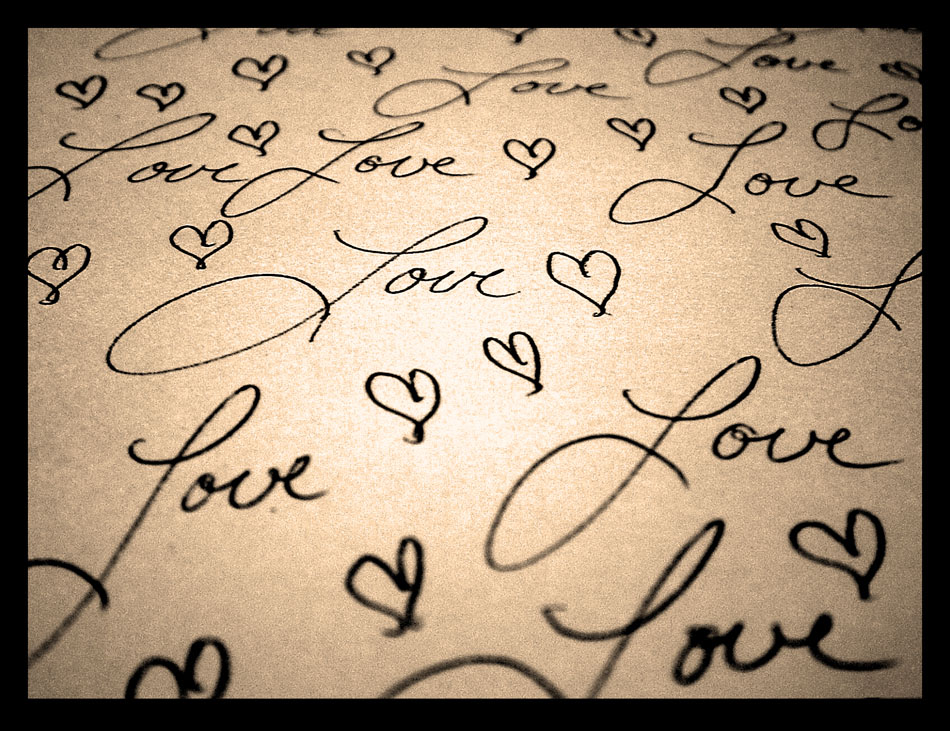 Love
Love
Love
Love
Love
Lo
Love
Love
Love
Love